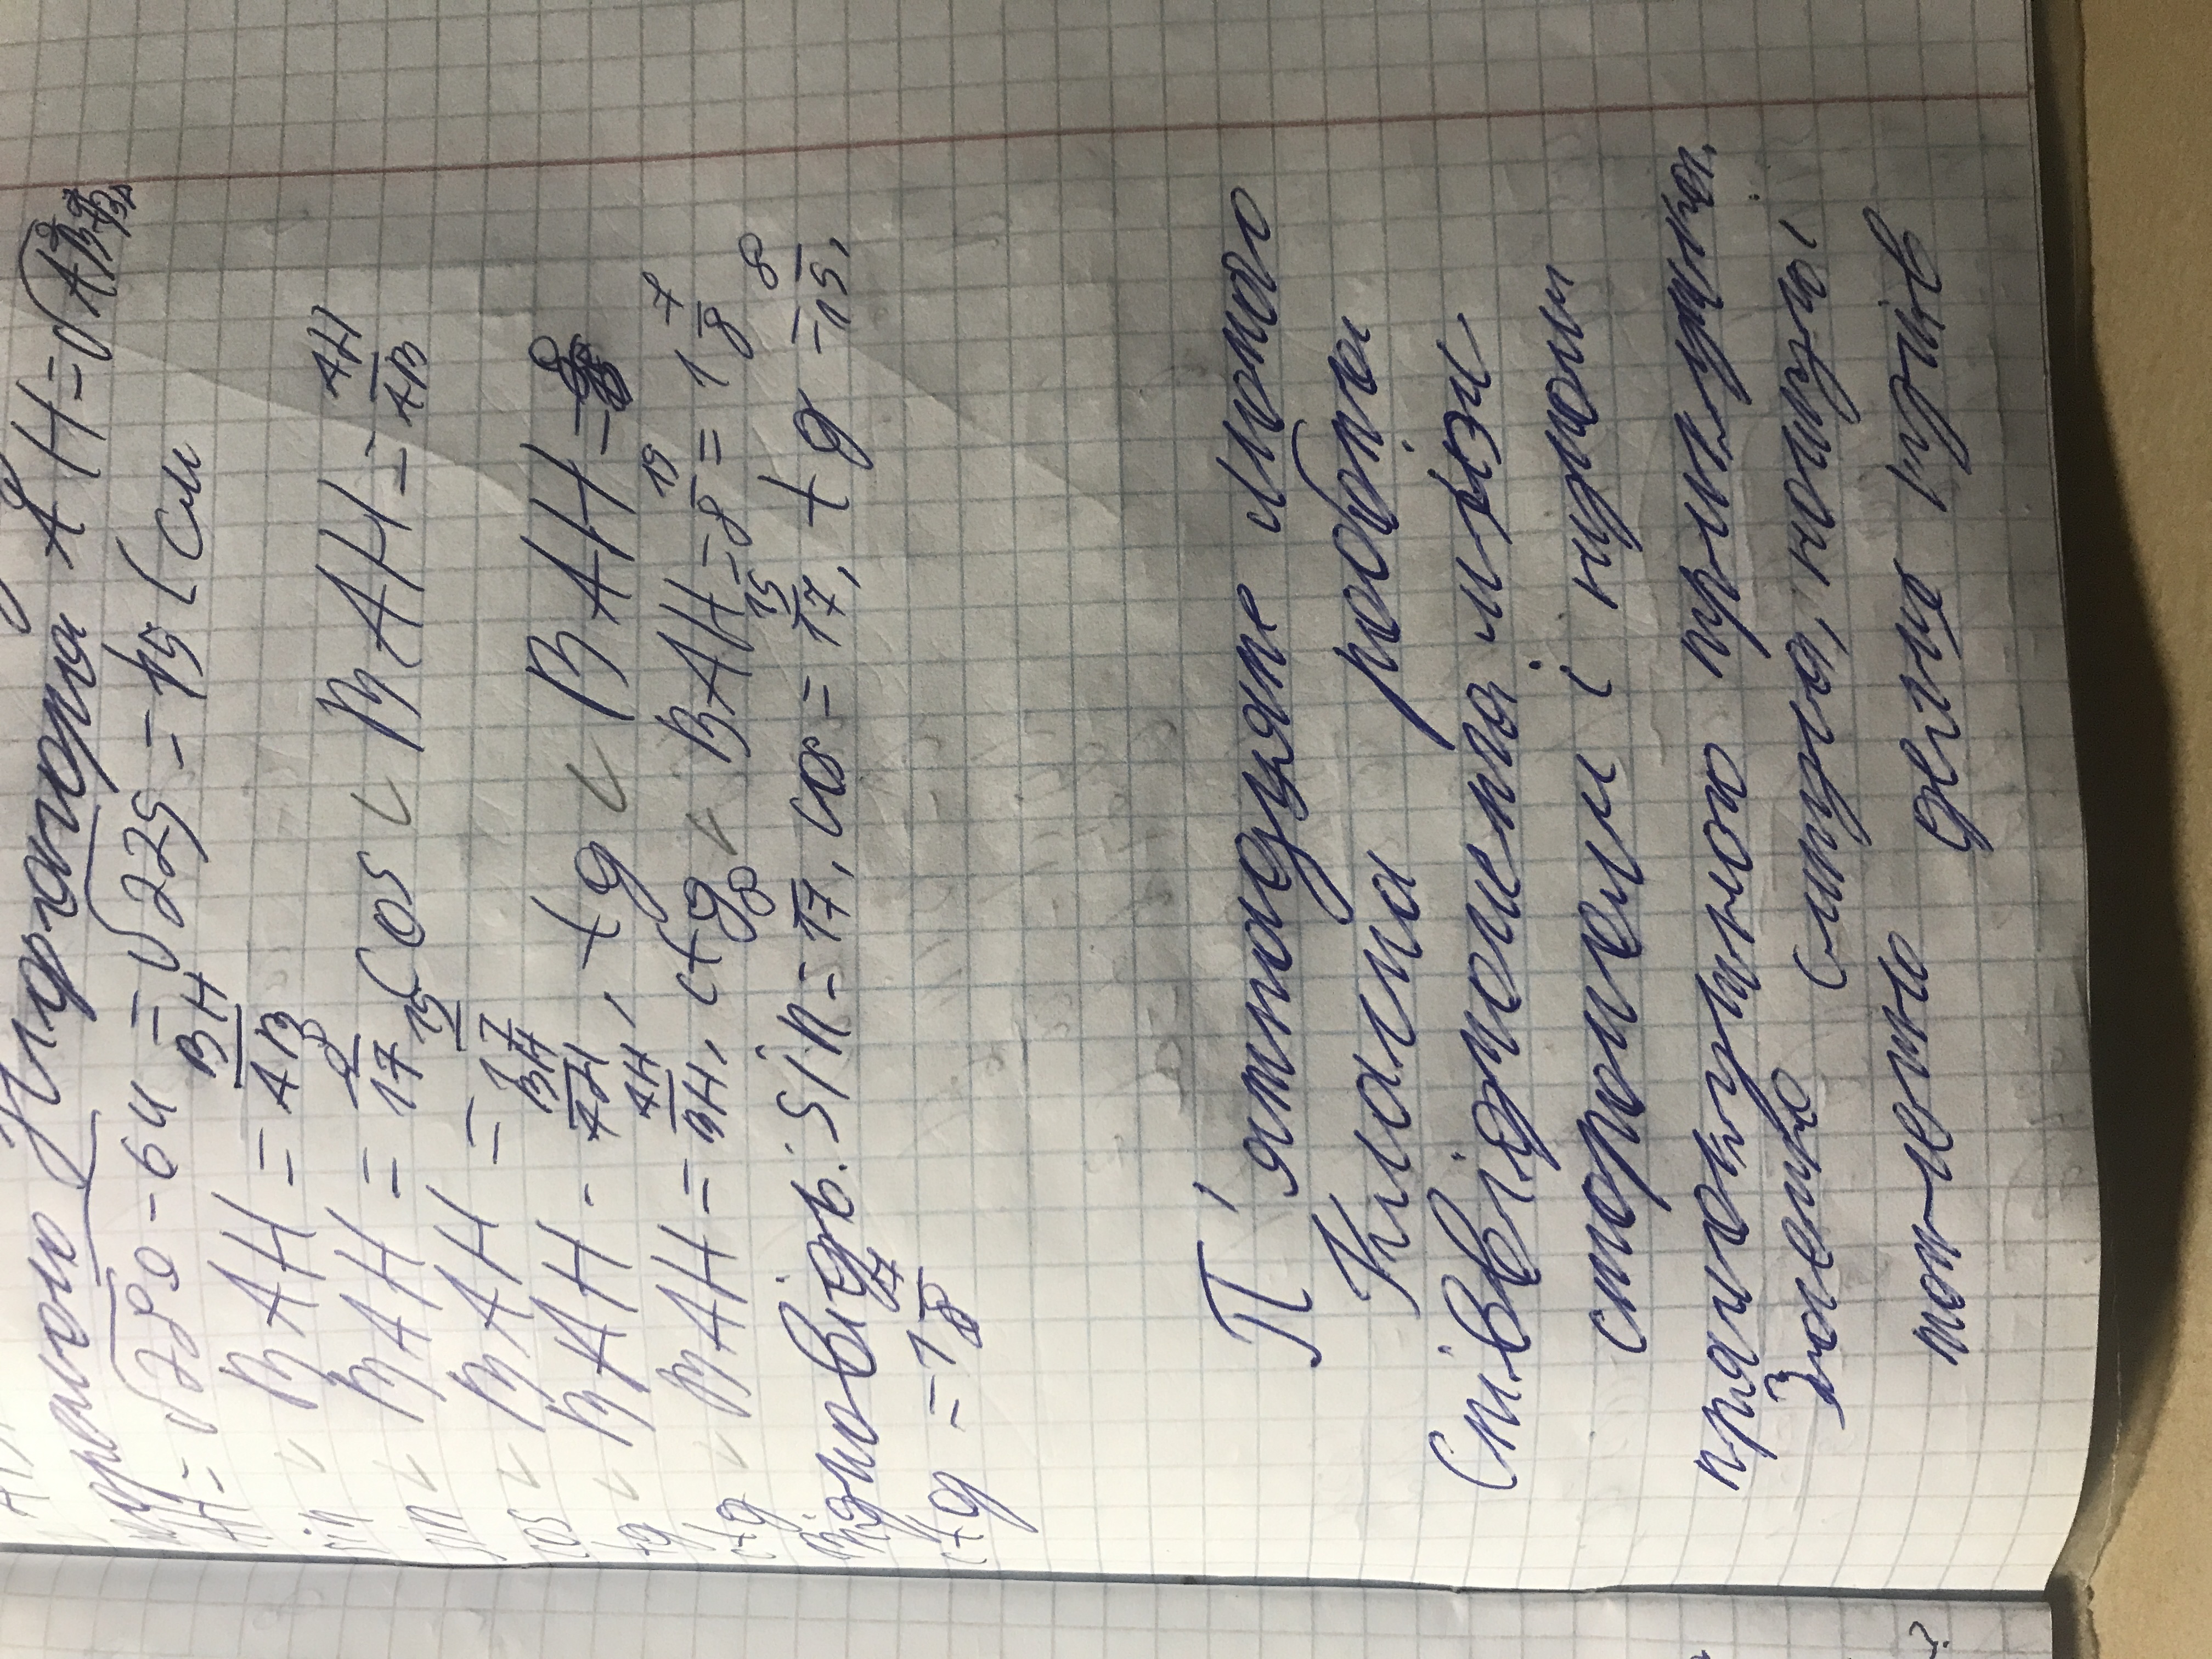 теремою Піфагора AH=√AB²-
AH=√289-64=√225=15(см
sin ∠ BAH = BH/AB
sin ∠ BAH = 8/17 Cos ∠ BAH = AH/AB
cos ∠ BAH = 15/17
tg ∠ BAH = BH/AH, tg ∠ BAH =
ctg ∠ BAH = AH/BH, ctg ∠ BAH = 15/8 = 1 7/8
Відповідь: sin = 8/17, cos = 15/17, tg = 8/15,
ctg = 1 7/8
П'ятнадцяте лютого
Класна робота
Співвідношення між
сторонами і кутом
прямокутного трикутника.
Значення синуса, косинуса і
тангенса деяких кутів